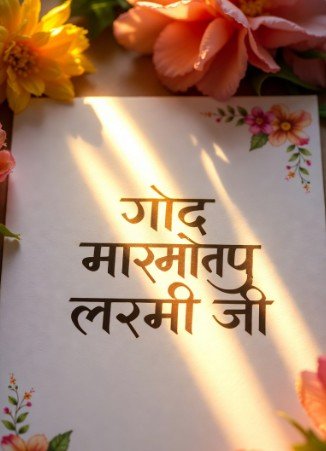 गोद
मारमोतपु
लरमी जी